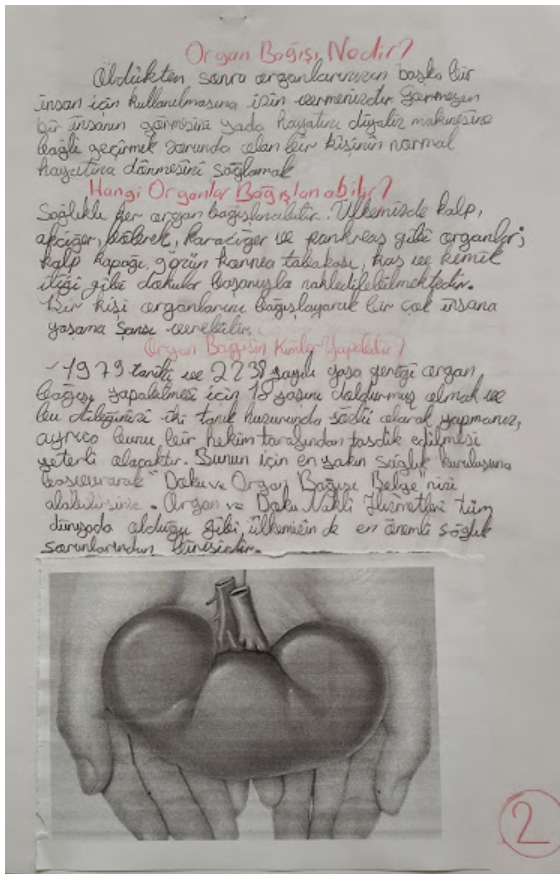 Organ Bağışı Nedir?
Öldükten sonra organlarınızın başka bir
insan için kullanılmasına izin vermenizdir. Görmeyen
bir insanın görmesini yada hayatını diyaliz makinesine
bağlı geçirmek zorunda olan bir kişinin normal
hayatına dönmesini sağlamak
Hangi Organlar Bağışlanabilir?
Sağlıklı her organ bağışlanabilir. Ülkemizde kalp,
akciğer, böbrek, karaciğer ve pankreas gibi organlar;
kalp kapağı, gözün kornea tabakası, kas ve kemik
iliği gibi dokular başarıyla nakledilebilmektedir.
Bir kişi organlarını bağışlayarak bir çok insana
yaşama şansı verebilir.
Organ Bağışın Kimler Yapabilir?
-1979 tarihli ve 2238 sayılı yasa gereği organ
bağışı yapabilmesi için 18 yaşını doldurmuş olmak ve
bu dileğinizi iki tanık huzurunda sözlü olarak yapmanız,
ayrıca bunu bir hekim tarafından tasdik edilmesi
yeterli olacaktır. Bunun için en yakın sağlık kuruluşuna
başvurarak "Doku ve Organ Bağışı Belge"nizi
alabilirsiniz. Organ ve Doku Nakli Hizmetleri tüm
dünyada olduğu gibi, ülkemizin de en önemli sağlık
sorunlarından birisidir.
2